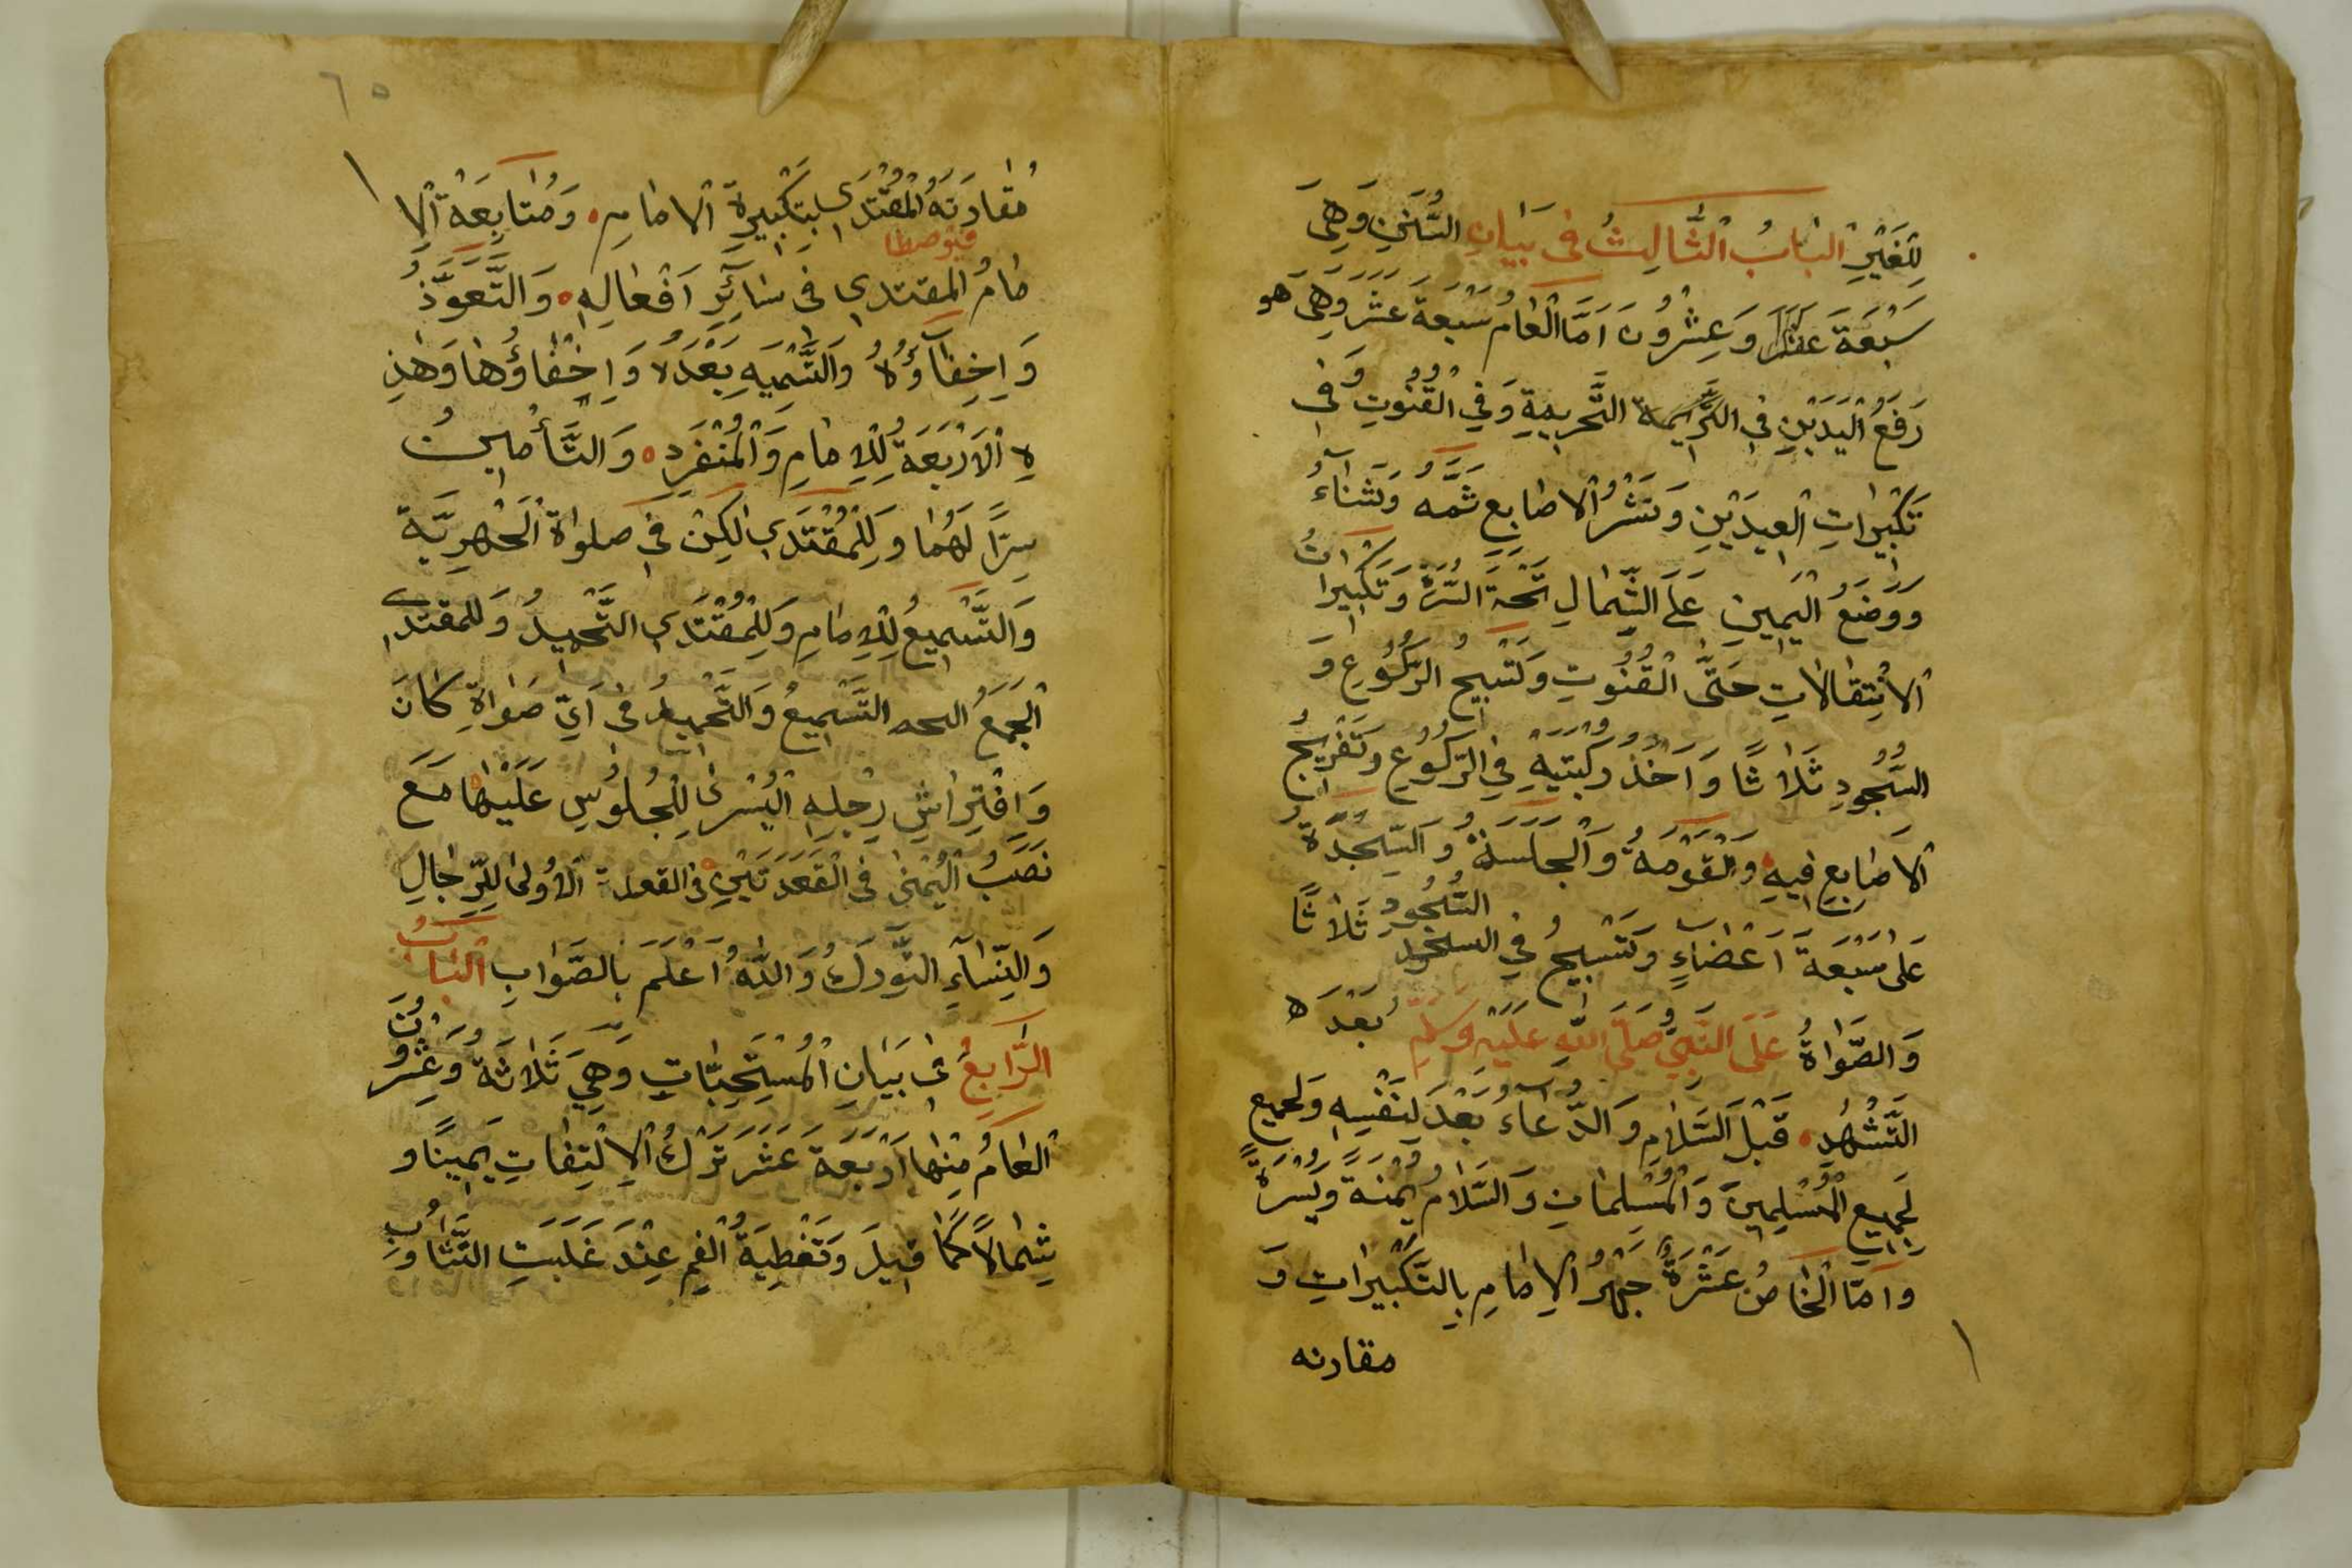 لِلْغَيْرِ الْبَابُ الثَّالِثُ فِى بَيَانِ السُّنَنِ وَهِىَ
سَبْعَةَ وَعِشْرُونَ اَمَّا الْعَامُ سَبْعَةَ عَشَرَ وَهِىَ هو
رَفَعُ الْيَدَيْنِ فِى التَّحْرِيمِيةِ وَفِي الْقُنُوتِ وَفِى
تَكْبِيرَاتِ الْعِيدَيْنِ وَنَشْرُ الْاَصَابِعِ ثَمَّهُ وَثَنَآءُ
وَوَضَعُ الْيَمِينِ عَلَى الشِّمَالِ تَحْةَ السُّرَّةِ وَتَكْبِيرَاتُ
الْاِنْتِقَالَاتِ حَتَّى الْقُنُوتِ وَتَسْبِيحُ الرُّكُوعِ وَ
السُّجُودِ ثَلَاثًا وَاَخْذُ رُكْبَتَيْهِ فِي الرُّكُوعِ وَتَفْرِيجُ
الْاَصَابِعِ فِيهِ وَالْقَوْمَةُ وَالْجَلْسَةُ وَالسَّجْدَةُ
عَلَى سَبْعَةَ اَعْضَاءٍ وَتَسْبِيحُ فِي السجود السُّجُودِ ثَلَاثًا
وَالصَّلٰوةُ عَلَى النَّبِيِّ صَلَّى اللّٰهِ عَلَيْهِ وَسَلَّم بَعْدَه
التَّشَهُّدِ قَبْلَ السَّلَامِ وَالدُّعَاءُ بَعْدَ لِنَفْسِهِ وَلجميع
لِجَمِيعِ الْمُسْلِمِينَ وَالْمُسْلِمَاتِ وَالسَّلَامُ يُمْنَةً وَيُسْرَةً
وَاَمَّا الْخَاصُ عَشْرَةٌ جَهْرُ الْاِمَامِ بِالتَّكْبِيرَاتِ وَ
مقارنه
٦٥
مُقَارَنَةُ الْمُقْتَدَى لِتَكْبِيرَةِ الْاِمَامِ وَمُتَابَعَةُ الْاِ
مَامُ الْمُقْتَدِي فِى سَآئِرِ اَفْعَالِهِ وَالتَّعَوُّذُ
وَاِخْفَآؤُهُ وَالتَّسْمِيَهِ بَعْدَهُ وَاِخْفَاؤُهَا وَهٰذِ
هِ الْاَرْبَعَةُ لِلْاِمَامِ وَالْمُنْفَرِدِ وَالتَّأْمِينُ
سِرًّا لَهُمَا وَلِلْمُقْتَدِي لٰكِنْ فِى صلواة الْجَهْرِيَّة
وَالتَّسْمِيعُ لِلْاِمَامِ وَلِلْمُقْتَدِي التَّحْمِيدُ وَللمقتدي
الْجَمَعُ التَّسْمِيعُ وَالتَّحْمِيدُ فِى اَيِّ صَلٰوةِ كَانَ
وَاِفْتِرَاشِ رِجْلِهِ الْيُسْرٰى لِلْجُلُوسِ عَلَيْهَا مَعَ
نَصَبُ الْيُمْنٰى فِى الْقَعْدَتَيْنِ فى القعدة الْاُولٰى لِلرِّجَالِ
وَالنِّسَآءِ التَّوَرُّكُ وَاللّٰهُ اَعْلَمَ بَالصَّوَابِ الْبَابُ
الرَّابِعُ فِى بَيَانِ الْمُسْتَحِبَّاتِ وَهِيَ ثَلَاثَةُ وَعِشْرُونَ
الْعَامُ مِنْهَا اَرْبَعَةَ عَشَرَ تَرْكُ الْاِلْتِفَاتِ يَمِينًا وَ
شِمَالًا كَمَا قِيلَ وَتَغْطِيَةُ الْفِمِ عِنْدَ غَلَبَتِ التَّثَاوُبِ